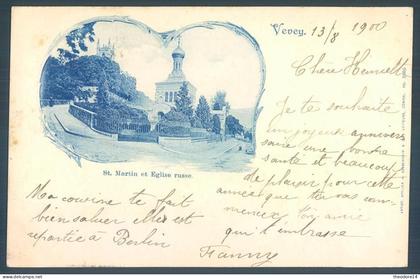 Vevey, 13/8 1900
Chère Henriette
Je te souhaite
un joyeux annivers
saire une bonne
santé et beaucoup
de plaisir pour cette
année que tu vas com-
mencer, ton amie
qui t'embrasse
Fanny
St. Martin et Eglise russe.
Ma cousine te fait
bien saluer elle est
repartie à Berlin